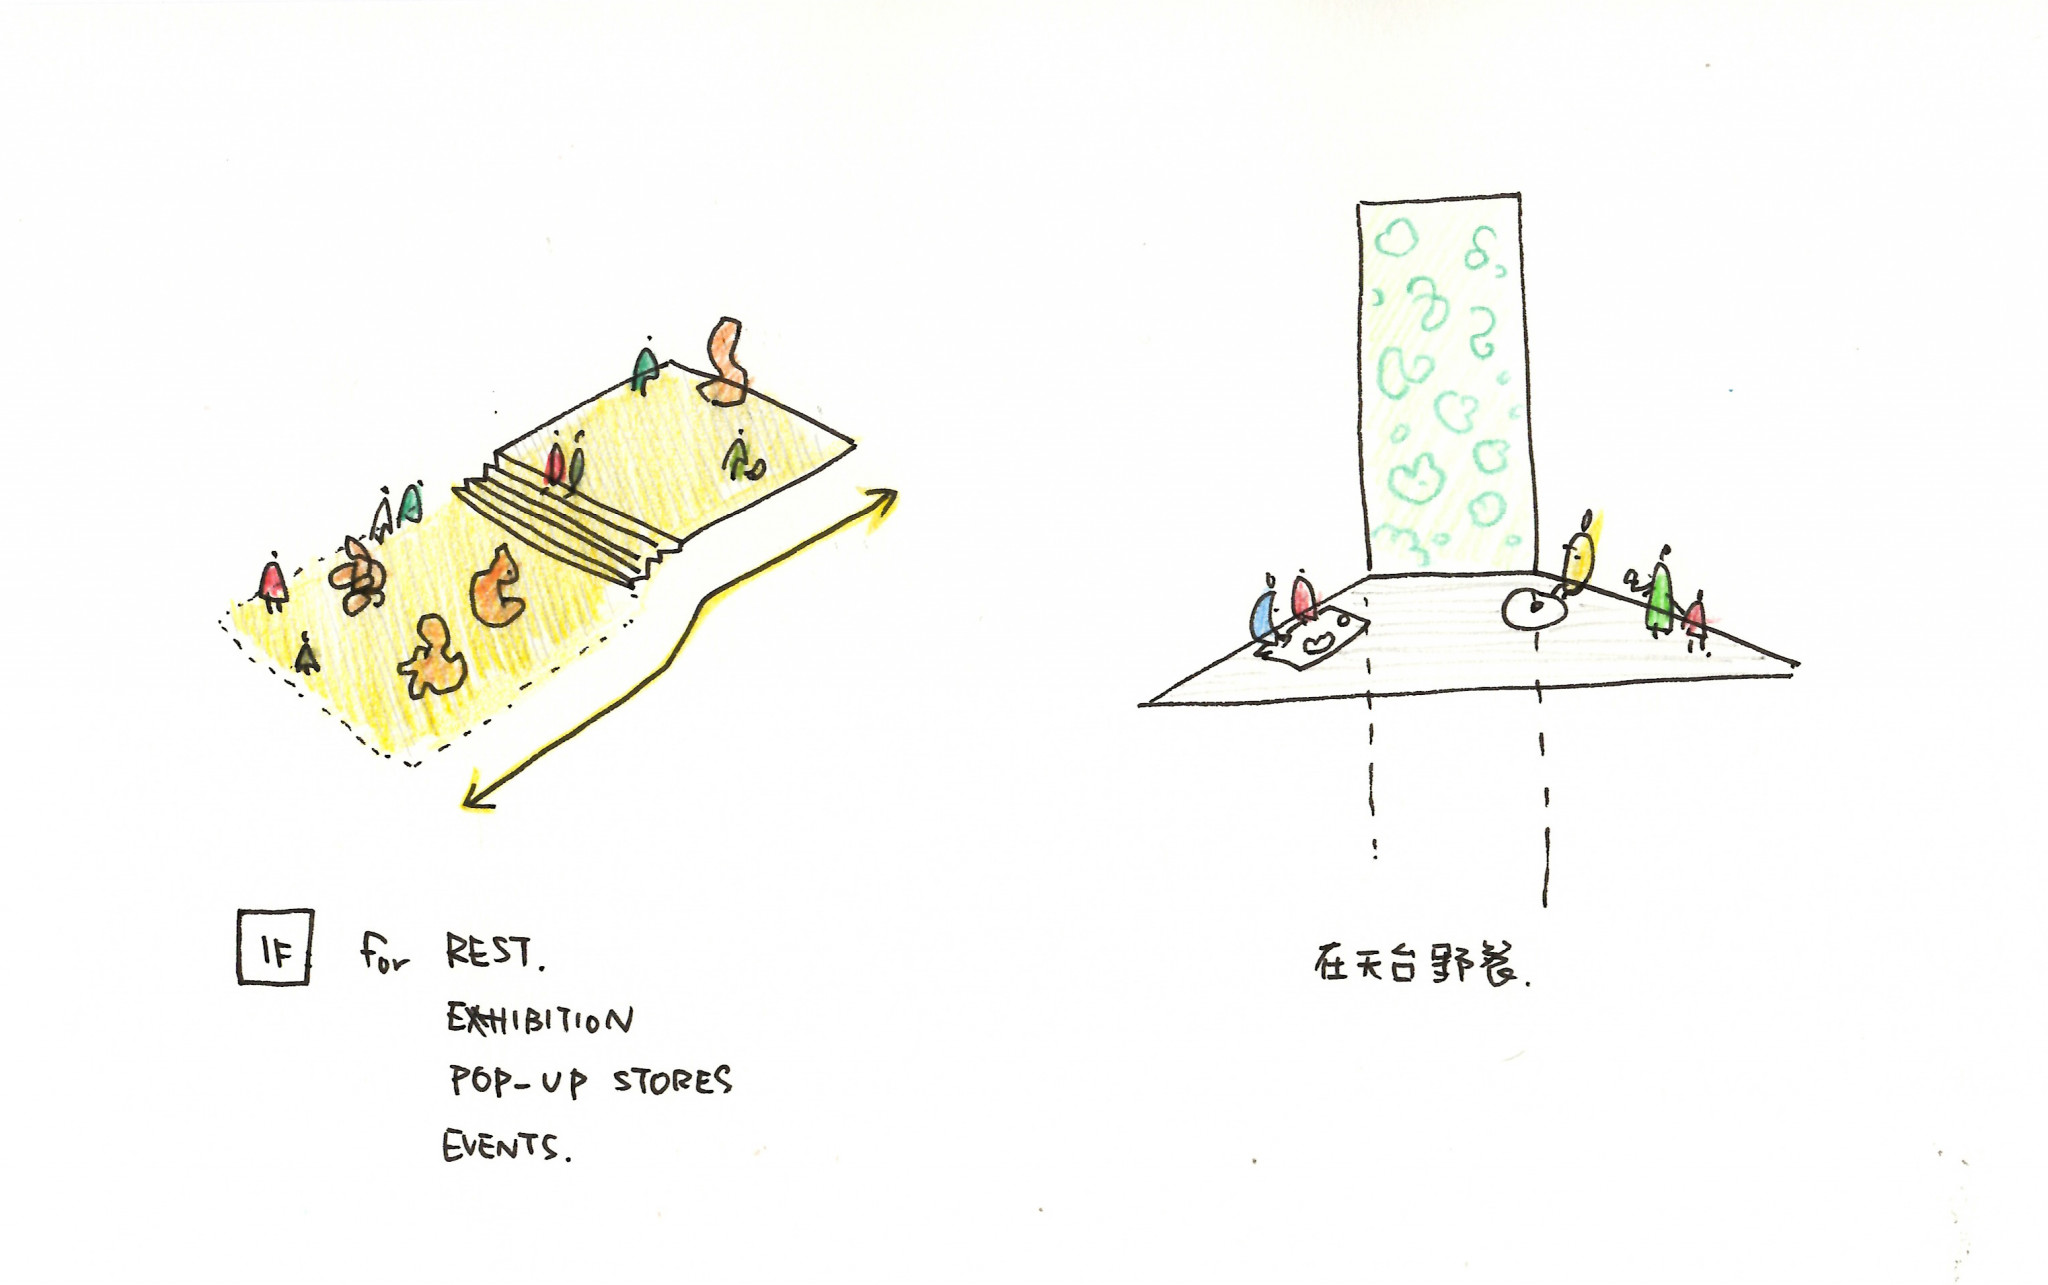 1F for REST.
EXHIBITION
POP-UP STORES
EVENTS.
在天台野餐.